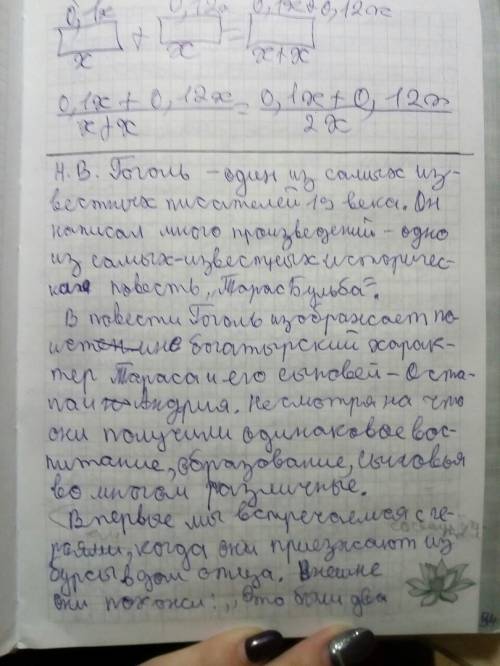 0,1x 0,12x 0,1x+0,12x
+ =
x x x+x
0,1x + 0,12x = 0,1x + 0,12x
x+x 2x
Н. В. Гоголь - один из самых из-
вестных писателей 19 века. Он
написал много произведений - одно
из самых известных историчес-
кая повесть „Тарас Бульба".
В повести Гоголь изображает по
истине богатырский харак-
тер Тараса и его сыновей - Оста-
па и Андрия. Несмотря на что
они получили одинаковое вос-
питание, образование, сыновья
во многом различные.
Впервые мы встречаемся с ге-
роями, когда они приезжают из
бурсы в дом отца. Внешне
они похожи: „Это были два
84